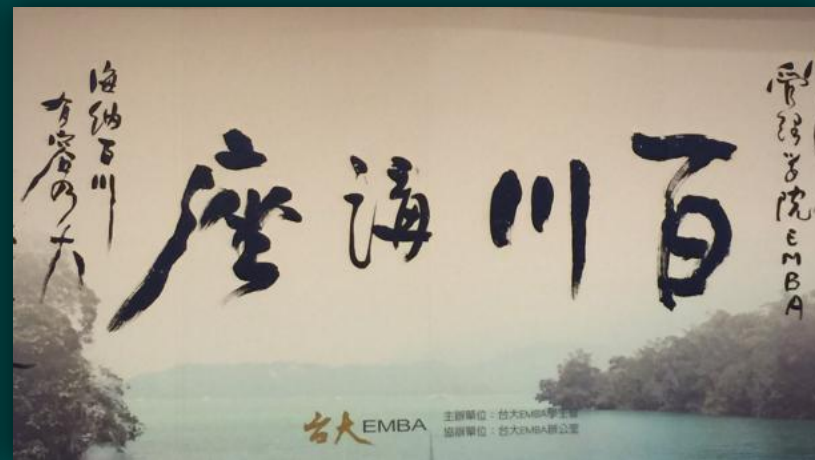 管理学院EMBA
百川講座
海納百川
有容乃大
台大EMBA
主辦單位：台大EMBA學生會
協辦單位：台大EMBA辦公室